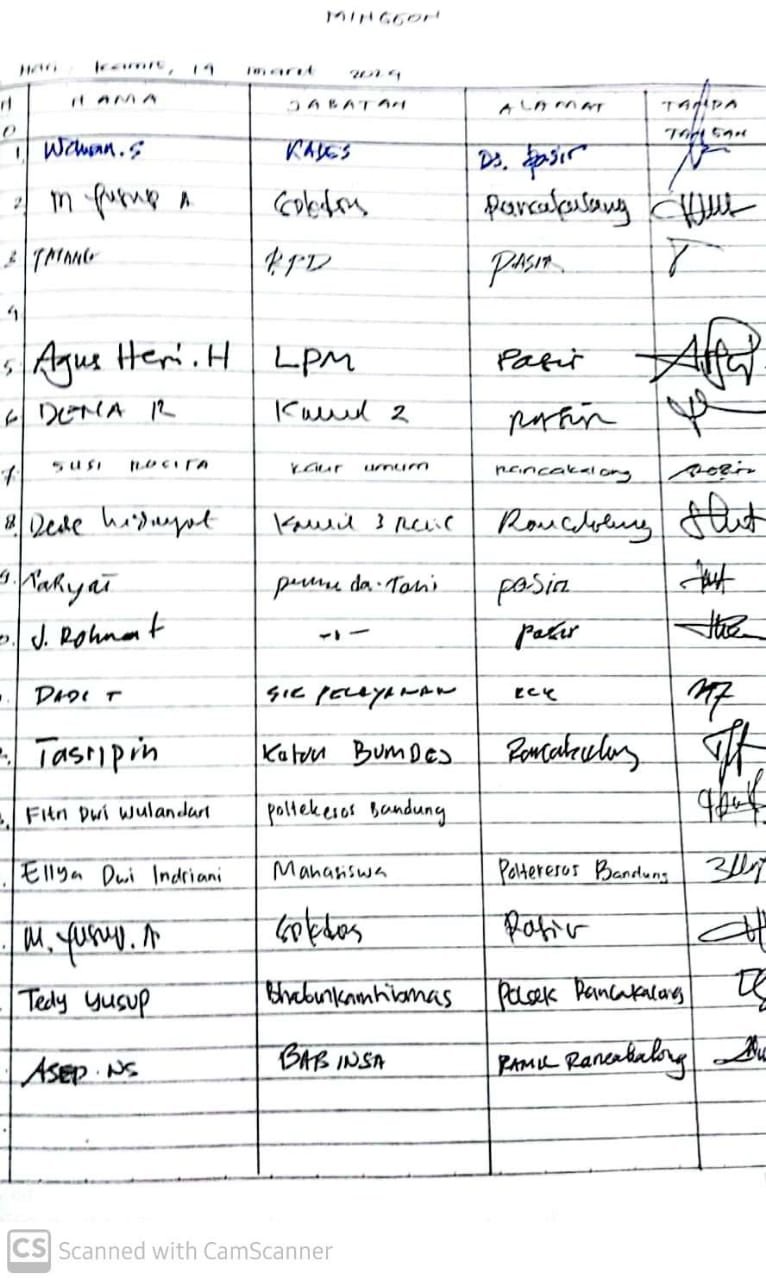 MINGGON
Hari : Kamis, 19 maret 2024
N NAMA JABATAN ALAMAT TANDA
O TANGAN
1, KADES Ds. Pasir
2, M Yusup A Sekdes Rancakalong
3 TATANG BPD PASIR
4
5 Agus Heri. H LPM Pasir
6 DENA R Kawil 2 PASIR
7. SUSI ROSITA Kaur umum Rancakalong
8. Dede hidayat Kawil 3 Rancakalong
9. Taryat Tani pasir
0. J. Rohmat -"- pasir
DADI T SIE PELAYANAN
Tasripin BUMDes Rancakalong
Fitri Dwi Wulandari poltekesos Bandung
Ellya Dwi Indriani Mahasiswa Poltekesos Bandung
M. Yusup. A Sekdes Pasir
Tedy Yusup Bhabinkamtibmas Polsek Rancakalong
ASEP. NS BABINSA RAMIL Rancakalong
CS Scanned with CamScanner